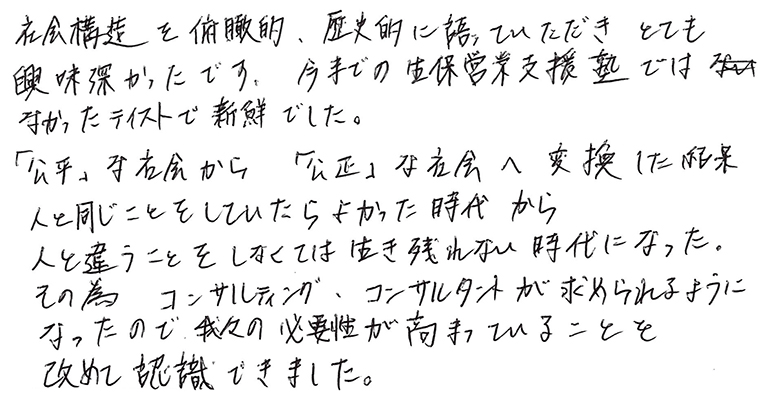 社会構造を俯瞰的、歴史的に語っていただきとても
興味深かったです。今までの生保営業支援塾では
なかったテイストで新鮮でした。
「公平」な社会から「公正」な社会へ変換した結果
人と同じことをしていたらよかった時代から
人と違うことをしなくては生き残れない時代になった。
その為 コンサルティング、コンサルタントが求められるように
なったので我々の必要性が高まっていることを
改めて認識できました。